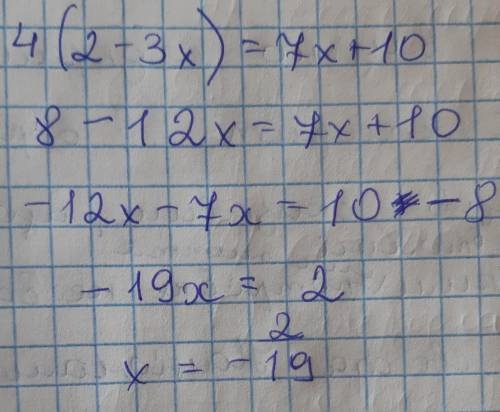 4(2-3x)=7x+10
8-12x=7x+10
-12x-7x=10-8
-19x=2
x=-2/19